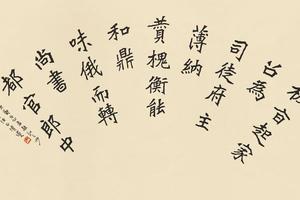 百起家
召為
司徒府主
薄納
贊槐衡能
和鼎
味俄而轉
尚書
都官郎中